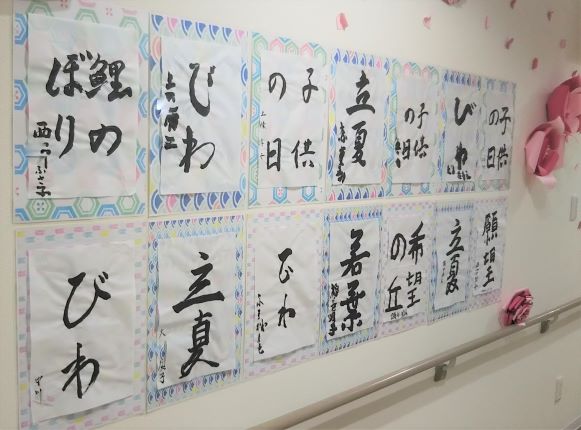 鯉の
ぼり
びわ
子供
の日
立夏
子供
の日
びわ
子供
の日
びわ
立夏
びわ
若葉
希望
の丘
立夏
願望